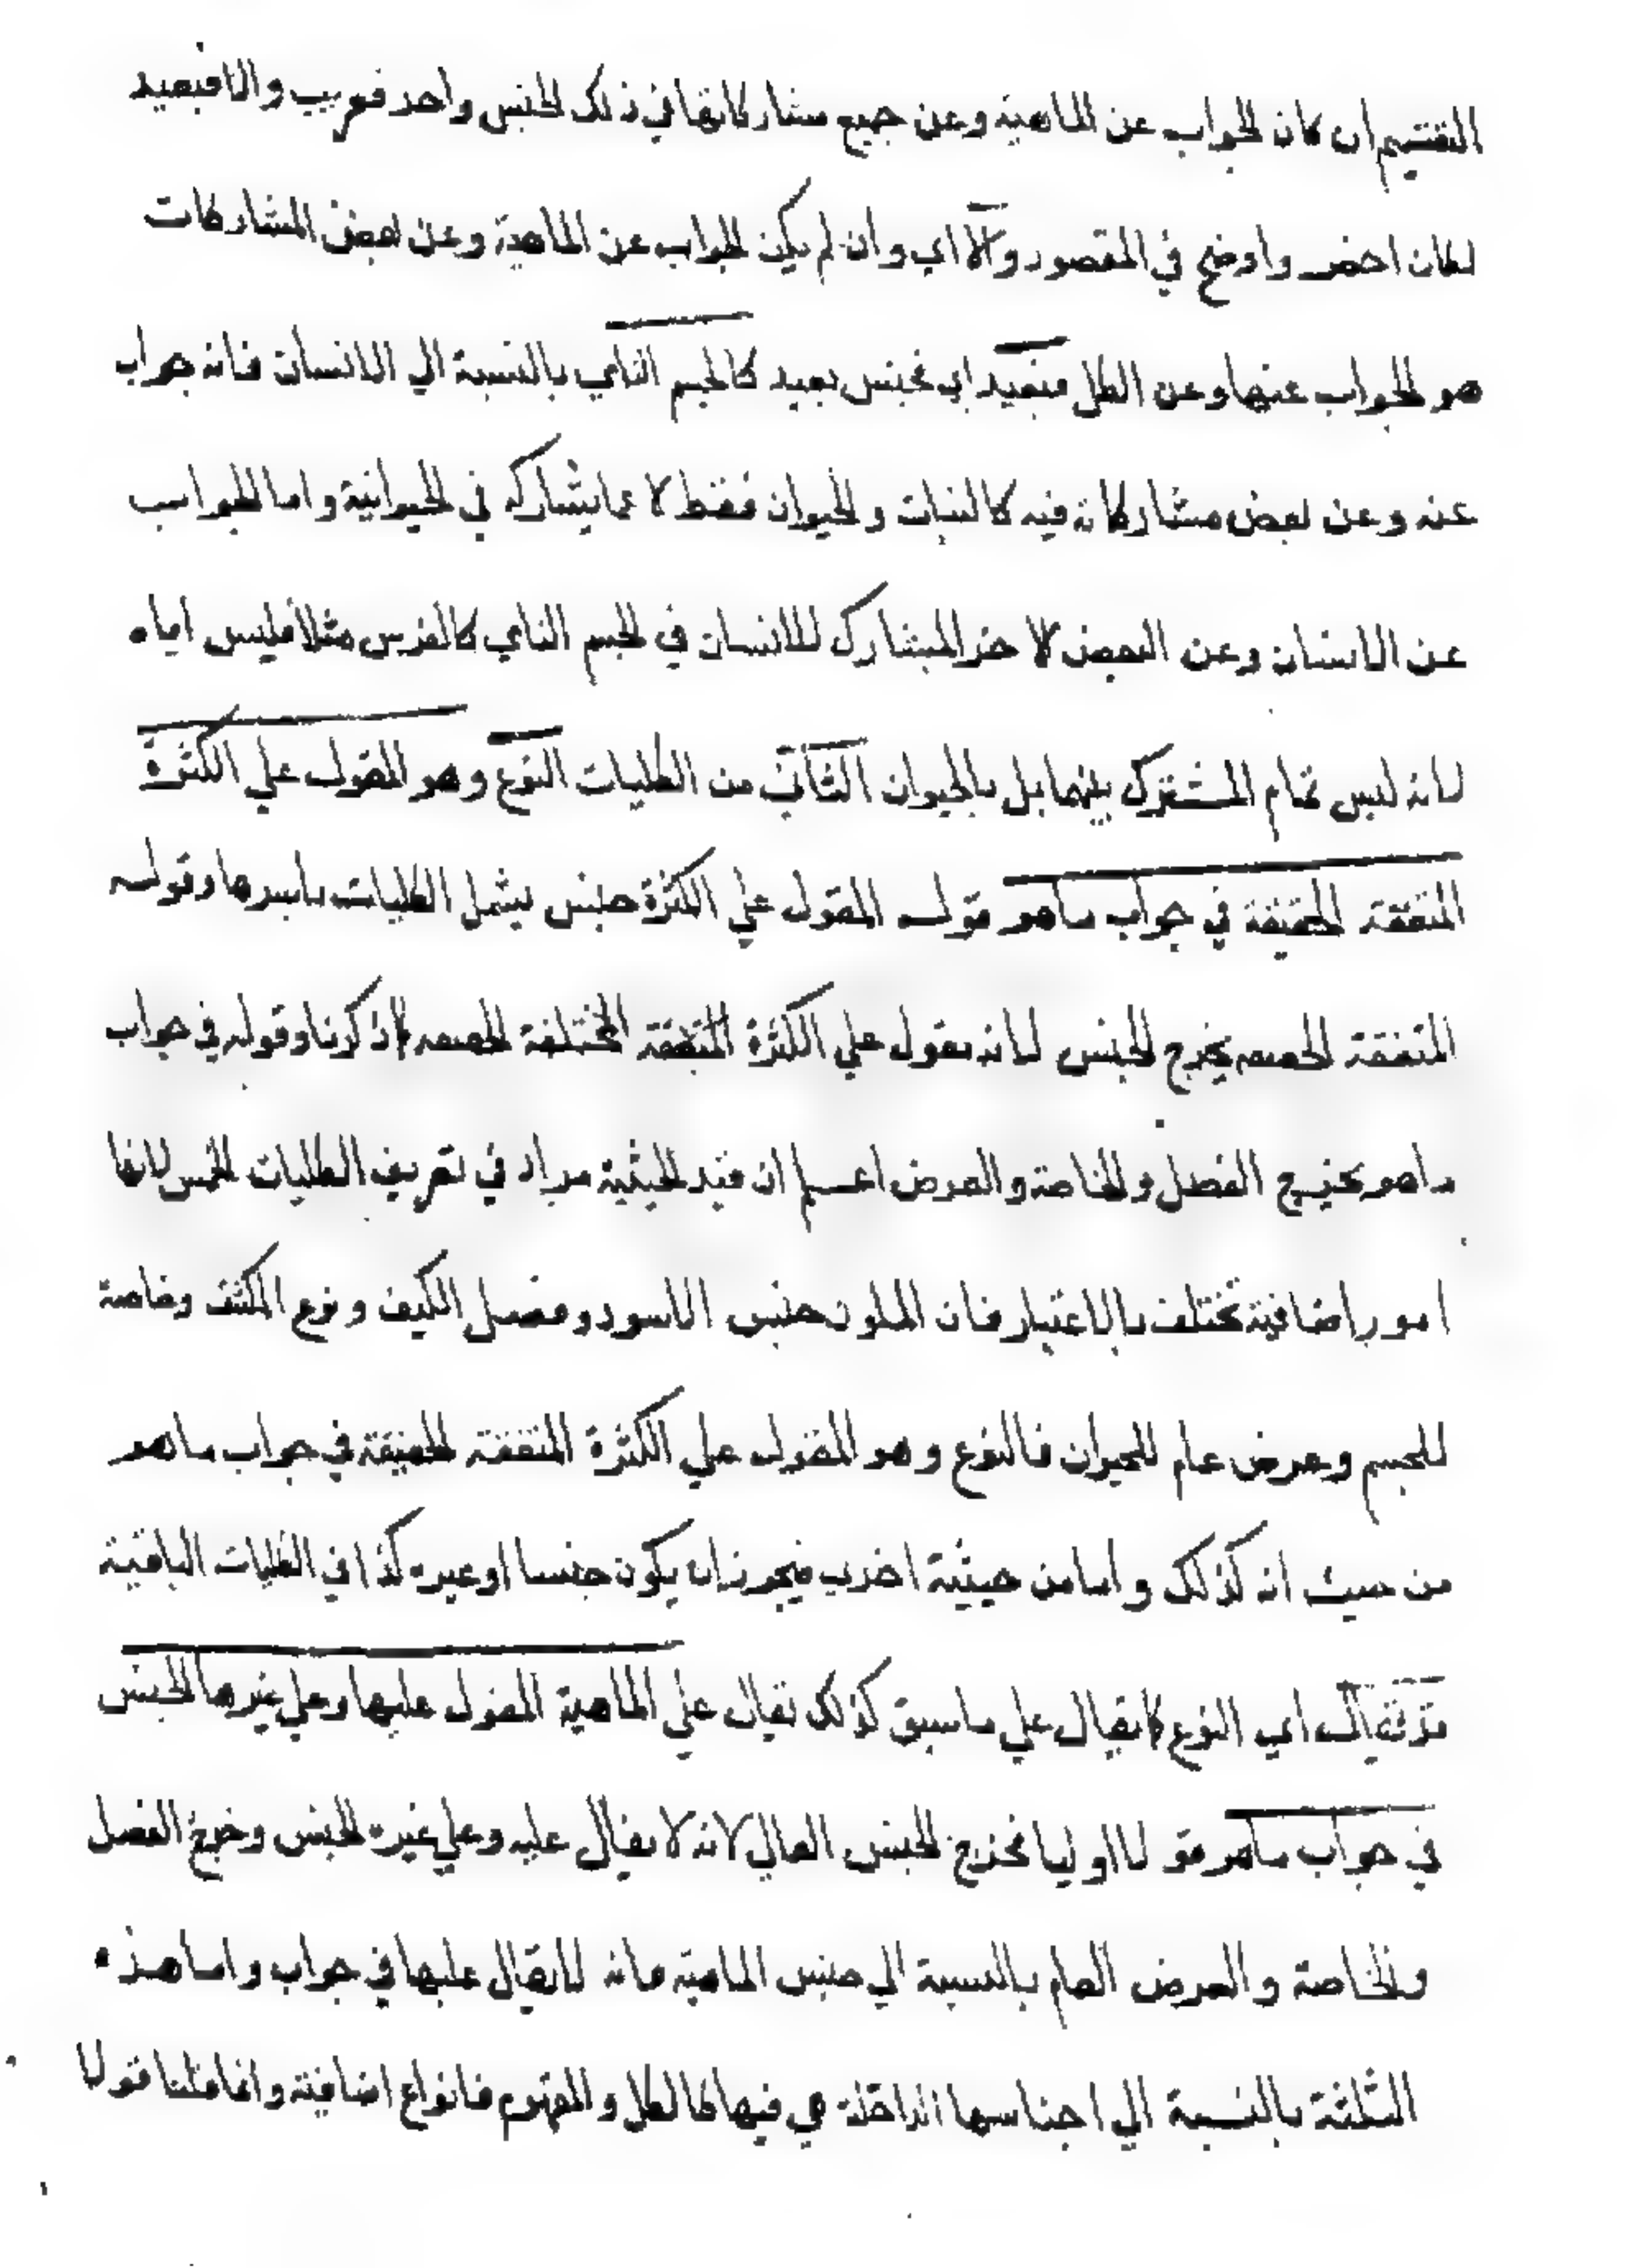 التقسيم ان كان الجواب عن الماهية وعن جميع مشاركاتها في ذلك الجنس واحد فقريب والا فبعيد
لكان اخصر واوضح في المقصود والا اي وان لم يكن الجواب عن الماهية وعن بعض المشاركات
هو الجواب عنها وعن الكل فبعيد اي فجنس بعيد كالجسم النامي بالنسبة الي الانسان فانه جواب
عنه وعن بعض مشاركاته فيه كالنبات والحيوان فقط لا عما يشاركه في الحيوانية واما الجواب
عن الانسان وعن البعض الاخر المشارك للانسان في الجسم النامي كالفرس مثلا فليس اياه
لانه ليس تمام المشترك بينهما بل بالحيوان الثاني من الكليات النوع وهو المقول علي الكثرة
المتفقة الحقيقة في جواب ماهو قوله المقول علي الكثرة جنس يشمل الكليات باسرها وقوله
المتفقة الحصصه يخرج الجنس لانه مقول علي الكثرة المتفقة المختلفة الحصصه لما ذكرنا وقوله في جواب
ماهو يخرج الفصل والخاصة والعرض اعلم ان قيد الحيثية مراد في تعريف الكليات الخمس لانها
امور اضافية تختلف بالاعتبار فان الملون جنس الاسود وفصل الكيف ونوع المكثف وخاصة
للجسم وعرض عام للحيوان فالنوع وهو المقول علي الكثرة المتفقة الحقيقة في جواب ماهو
من حيث انه كذلك واما من حيثية اخري فيجوز ان يكون جنسا او غيره كذا في الكليات الباقية
قد يقال اي النوع كما يقال علي ما سبق كذلك يقال علي الماهية المقول عليها وعلي غيرها الجنس
في جواب ماهو قولا اوليا فخرج الجنس العالي لانه لا يقال عليه وعلي غيره الجنس وخرج الفصل
والخاصة والعرض العام بالنسبة الي جنس الماهية فانه لا يقال عليها في جواب واما هذه
الثلثة بالنسبة الي اجناسها الداخلة هي فيها كالكل والمفهوم فانواع اضافية وانما قلنا قولا